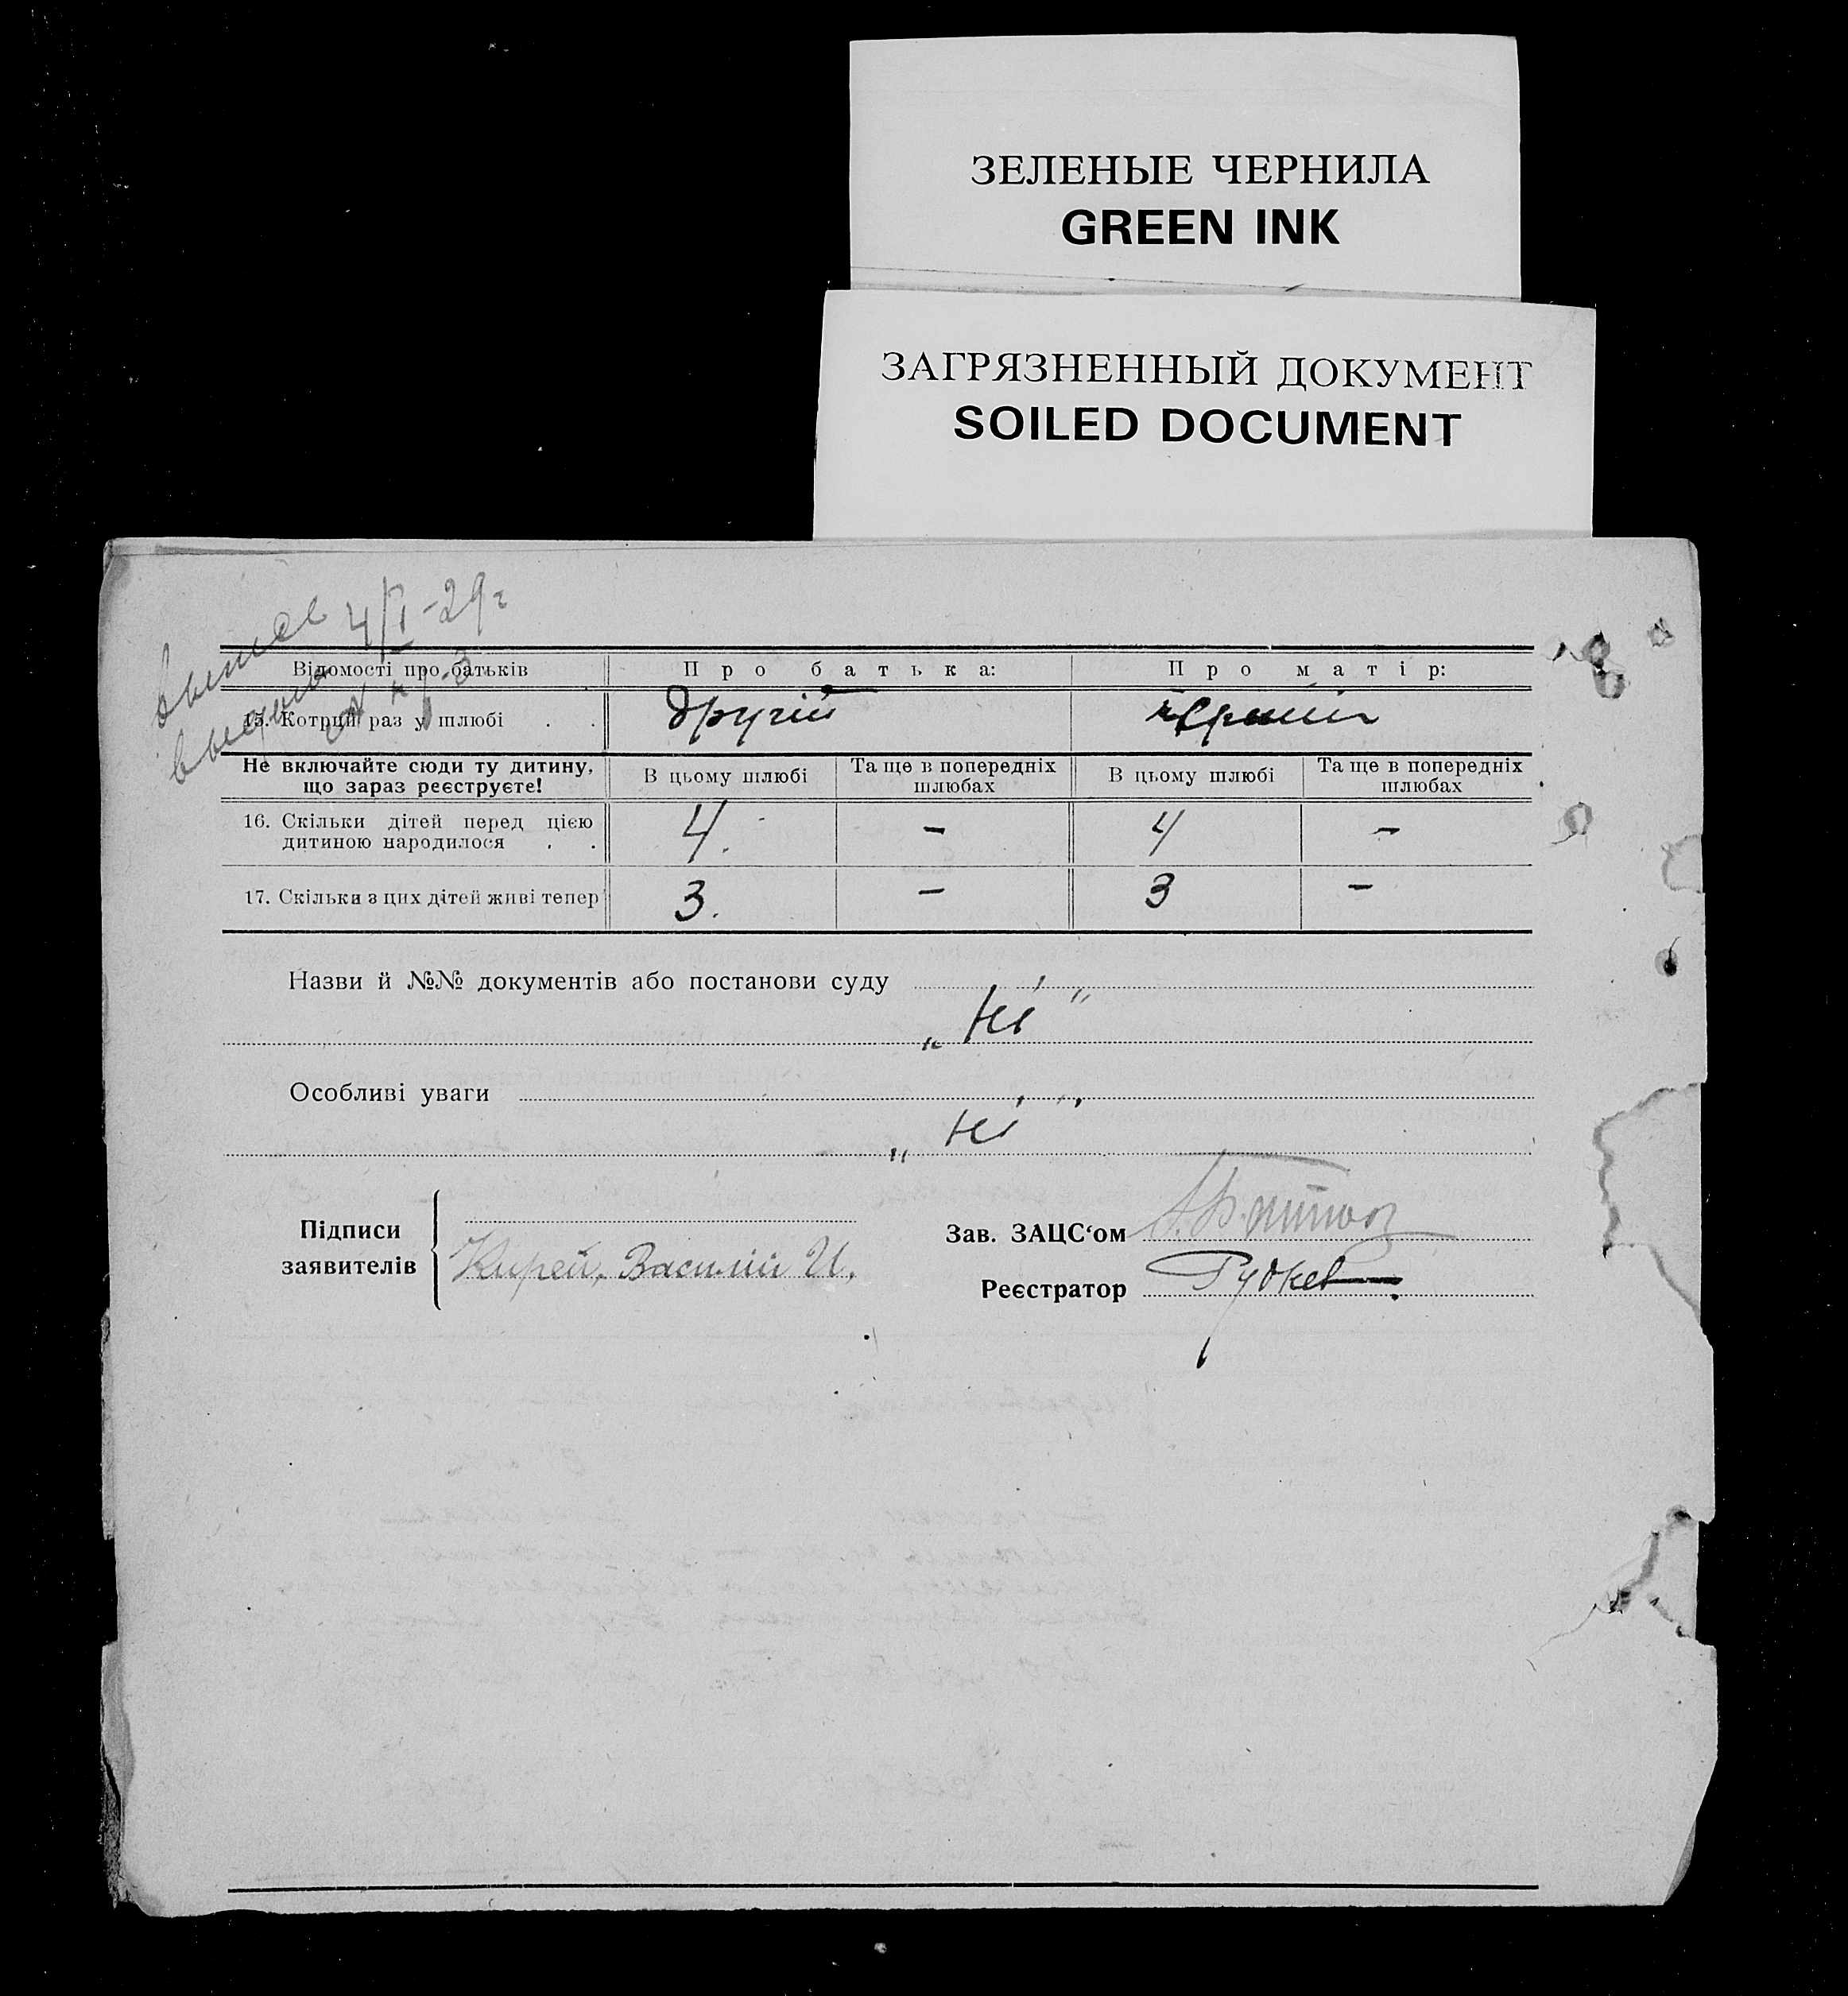 ЗЕЛЕНЫЕ ЧЕРНИЛА
GREEN INK
ЗАГРЯЗНЕННЫЙ ДОКУМЕНТ
SOILED DOCUMENT
4/I-29г
Відомості про батьків Про батька: Про матір:
15. Котрий раз у шлюбі . . другій
Не включайте сюди ту дитину, що зараз реєструєте! В цьому шлюбі Та ще в попередніх шлюбах В цьому шлюбі Та ще в попередніх шлюбах
16. Скільки дітей перед цією
дитиною народилося . . 4. – 4 –
17. Скільки з цих дітей живі тепер 3. – 3 –
Назви й №№ документів або постанови суду
„Ні“
Особливі уваги
„Ні“
Підписи
заявителів Кирей, Василий И.
Зав. ЗАЦС‘ом
Реєстратор